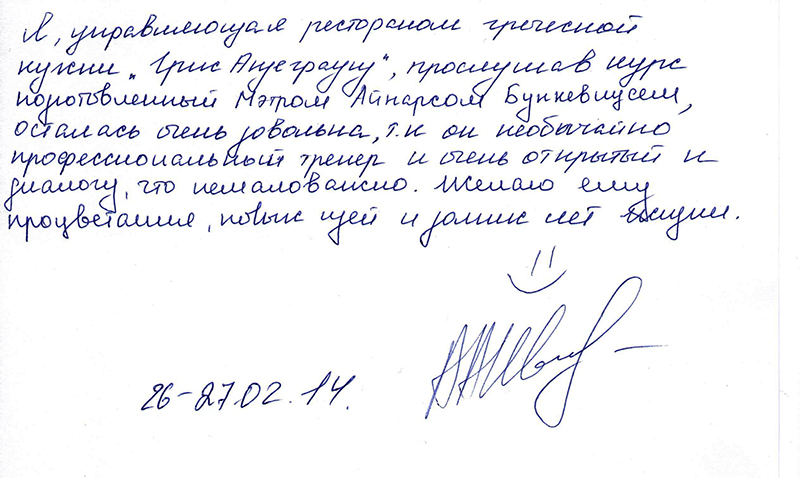 Я, управляющая рестораном греческой
кухни „Грис Андеграунд“, прослушав курс
подготовленный Мэтром Айнарсом Бункевицусем,
осталась очень довольна, т.к он необычайно
профессиональный тренер и очень открытый к
диалогу, что немаловажно. Желаю ему
процветания, новых идей и долгих лет жизни.
26-27.02.14.